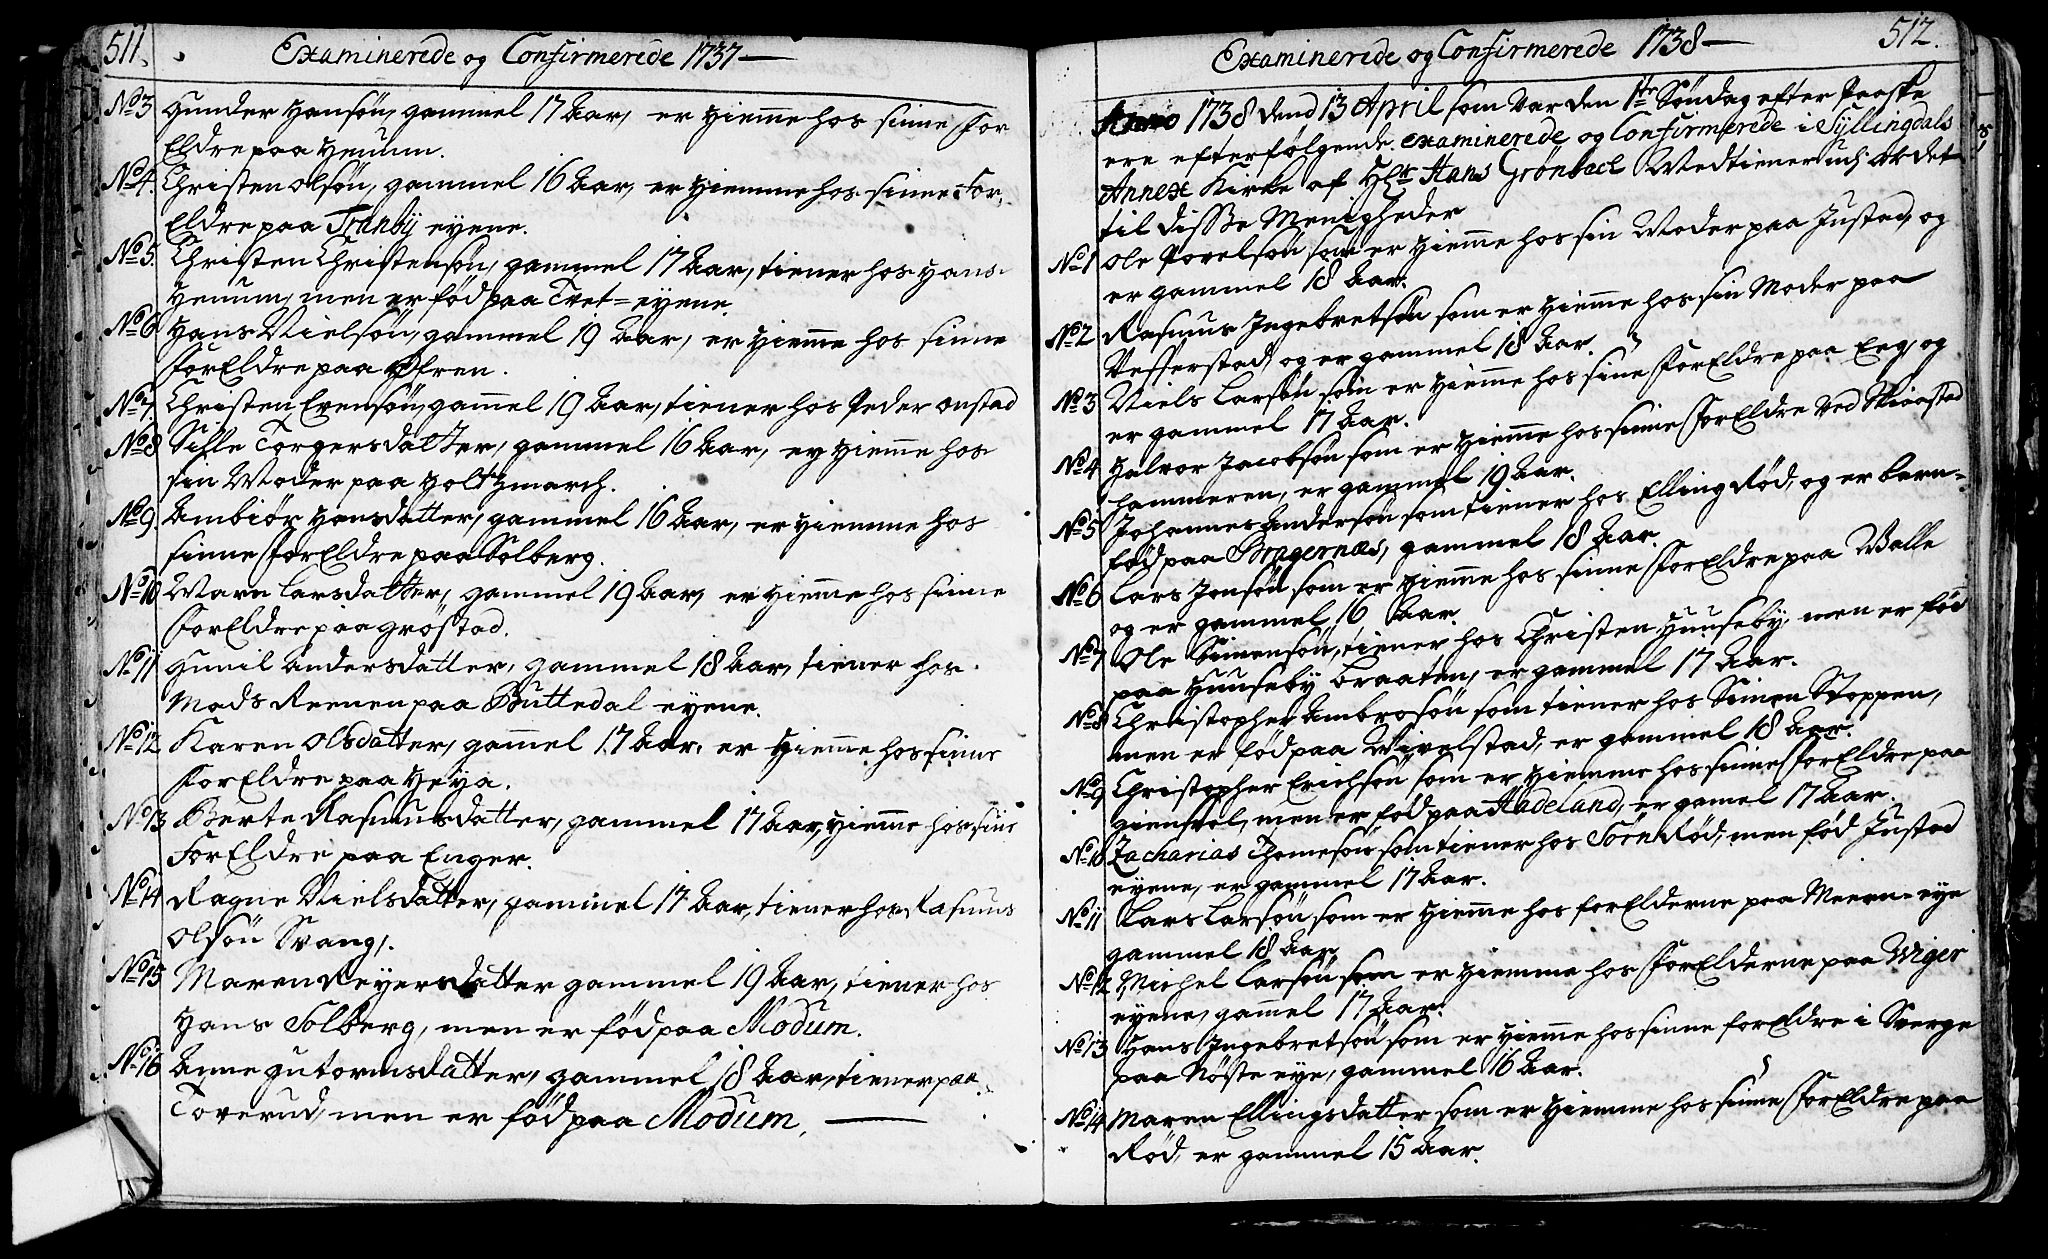 511.
Examinerede og Confirmerede 1737
No 3 Gunder Hansøn, gammel 17 Aar, er hiemme hos sinne For
Eldre paa Henum.
No 4. Christen Olsøn, gammel 16 Aar, er hiemme hos sinne For-
Eldre paa Tranby eyene.
No 5. Christen Christensøn, gammel 17 Aar, tiener hos Hans
Henum, men er fød paa Tvet=eyene.
No 6 Hans Nielsøn, gammel 19 Aar, er hiemme hos sinne
ForEldre paa Øfren.
No 7. Christen Evensøn, gammel 19 Aar, tiener hos Peder Onstad
No 8 Sille Torgersdatter, gammel 16 Aar, er hiemme hos
sin Moder paa Holtzmarch.
No 9 Ambiør Hansdatter, gammel 16 Aar, er hiemme hos
sinne ForEldre paa Solberg.
No 10 Maren Larsdatter, gammel 19 Aar, er hiemme hos sinne
ForEldre paa Grøstad.
No 11 Gunil Andersdatter, gammel 18 Aar, tiener hos
Mads Reenen paa Buttedal eyene.
No 12 Karen Olsdatter, gammel 17 Aar, er hiemme hos sinne
ForEldre paa Heya.
No 13 Berte Rasmusdatter, gammel 17 Aar, hiemme hos sine
ForEldre paa Enger.
No 14 Ragne Nielsdatter, gammel 17 Aar, tiener hos Rasmus
Olsøn Svang.
No 15 Maren Reyersdatter gammel 19 Aar, tiener hos
Hans Solberg, men er fød paa Modum.
No 16 Anne Gutormsdatter, gammel 18 Aar, tiener paa
Toverud, men er fød paa Modum.
512.
Examinerede og Confirmerede 1738
Anno 1738 dend 13 April som var den 1te Søndag efter Paaske
ere efterfølgende examinerede og Confirmerede i Syllingdals
Annex Kirke af Hans Grønbech Medtiener udi Ordet
til disse Menigheder
No 1 Ole Povelsøn som er hiemme hos sin Moder paa Justad, og
er gammel 18 Aar.
No 2 Rasmus Ingebretsøn som er hiemme hos sin Moder paa
Vefferstad, og er gammel 18 Aar.
No 3 Niels Larsøn som er hiemme hos sine ForEldre paa Eng, og
er gammel 17 Aar.
No 4 Halvor Jacobsøn som er hiemme hos sinne ForEldre ved
hammeren, er gammel 19 Aar.
No 5 Johannes Andersøn som tiener hos Elling Rød, og er barn-
fød paa Bragernæs, gammel 18 Aar.
No 6 Lars Jonsøn som er hiemme hos sinne ForEldre paa Walle
og er gammel 16 Aar.
No 7 Ole Simensøn, tiener hos Christen Huuseby, men er fød
paa Huuseby Braaten, er gammel 17 Aar.
No 8 Christopher Ambrosøn som tiener hos Simen Stoppen,
men er fød paa Wivelstad, er gammel 18 Aar.
No 9 Christopher Erichsøn som er hiemme hos sinne ForEldre paa
men er fød paa Hadeland, er gamel 17 Aar.
No 10 Zacharias Thomesøn som tiener hos Sørn Rød, men fød Justad
eyene, er gammel 17 Aar.
No 11 Lars Larsøn som er hiemme hos forElderne paa Meeren=eye
gammel 18 Aar
No 12 Michel Larsøn som er hiemme hos ForElderne paa Wiger
eyene, gammel 17 Aar.
No 13 Hans Ingebretsøn som er hiemme hos sinne forEldre i Sverge
paa Nøste eye, gammel 16 Aar.
No 14 Maren Ellingsdatter som er hiemme hos sinne ForEldre paa
Rød, er gammel 15 Aar.